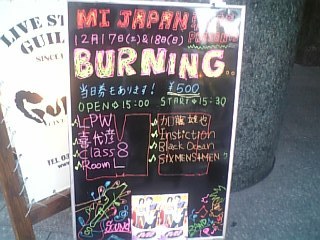 LIVE ST
GUIL
SINCE
MI JAPAN
12月17日(土)&18日(日)
BURNING
当日券もあります! ¥500
OPEN 15:00 START 15:30
LPW
glass8
Room L
加藤雄也
Instiction
Black Ocean
SIXMENS4MEN
Sound